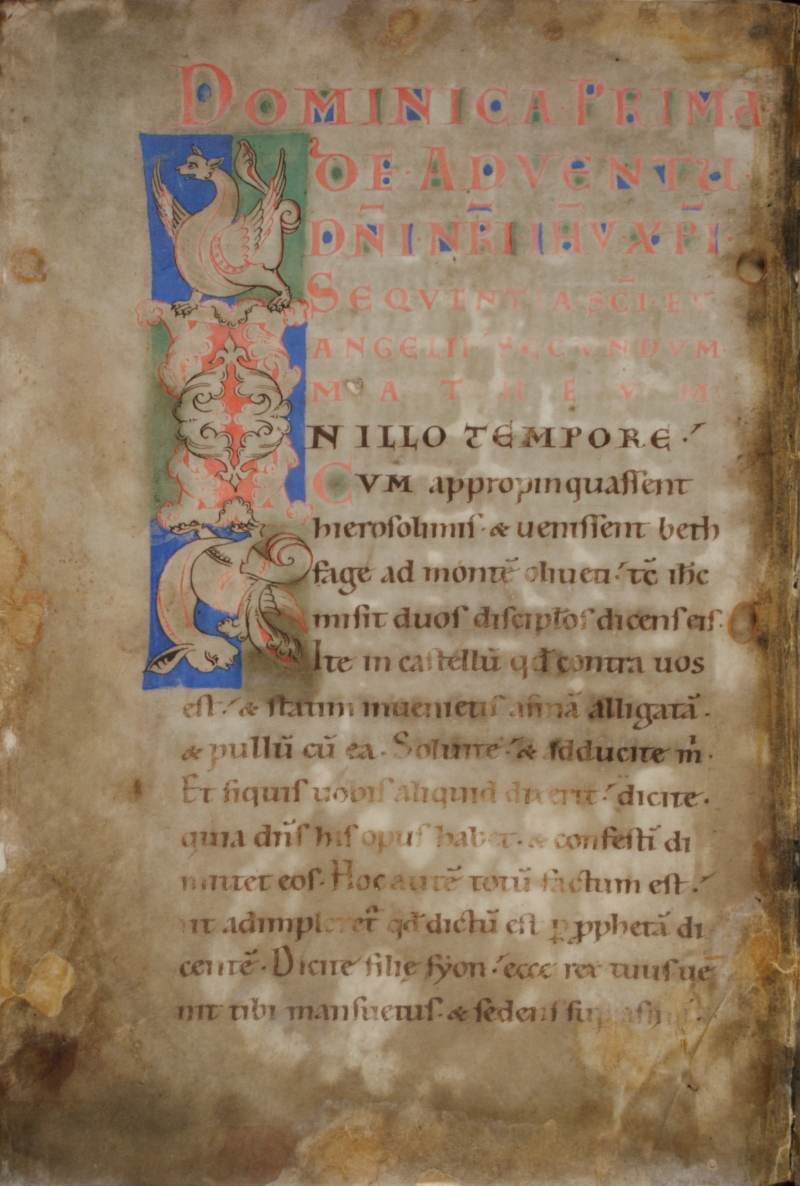 DOMINICA PRIMA
DE ADVENTU
DÑI NR̄I IHV XPĪ
SEQVENTIA SC̄I EV
ANGELII SECVNDVM
MATHEVM
IN ILLO TEMPORE ·
CVM appropinquaſſent
hieroſolimiſ · & ueniſſent beth
fage ad montē oliueti · tc̄ ihc
miſit duoſ diſcip̄loſ dicenſ eiſ ·
Ite in caſtellū qđ contra uoſ
eſt · & ſtatim inuenietiſ aſinā alligatā ·
& pullū cū ea · Soluite · & adducite m̄ ·
Et ſiquiſ uobiſ aliquid dixerit · dicite ·
quia dn̄ſ hiſ opuſ habet · & confeſtī di
mittet eoſ · Hoc autē totū factum eſt ·
ut adimpleret᷑ qđ dictū eſt ꝑ ꝓphetā di
centē · Dicite filię ſyon · ecce rex tuuſ ue
nit tibi manſuetuſ · & ſedenſ